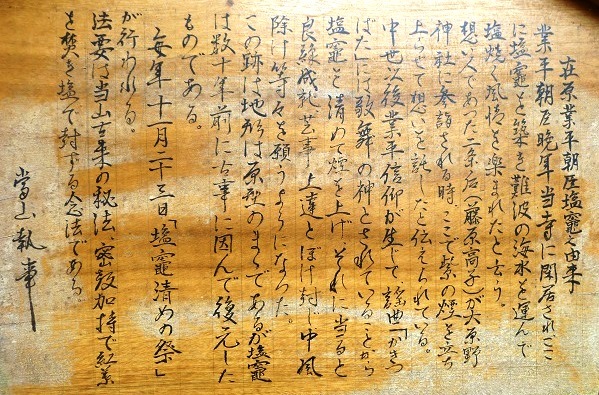 在原業平朝臣塩竈之由来
業平朝臣晩年当寺に閑居されここ
に塩竈を築き難波の海水を運んで
塩焼く風情を楽まれたと言う。
想い人であった二条后(藤原高子)が大原野
神社に参詣される時、ここで紫の煙を立ち
上らせて想いを託したと伝えられている。
中世以後業平信仰が生じて謡曲「かきつ
ばた」には歌舞の神とされていることから
塩竈を清めて煙を上げ、それに当ると
良縁成就、芸事上達とぼけ封じ中風
除け等々を願うようになった。
この跡は地形は原型のままであるが塩竈
は数十年前に古事に因んで復元した
ものである。
毎年十一月二十三日「塩竈清めの祭」
が行われる。
法要は当山古来の秘法、密教加持で紅葉
を焚き塩で封ずる念法である
當山執事